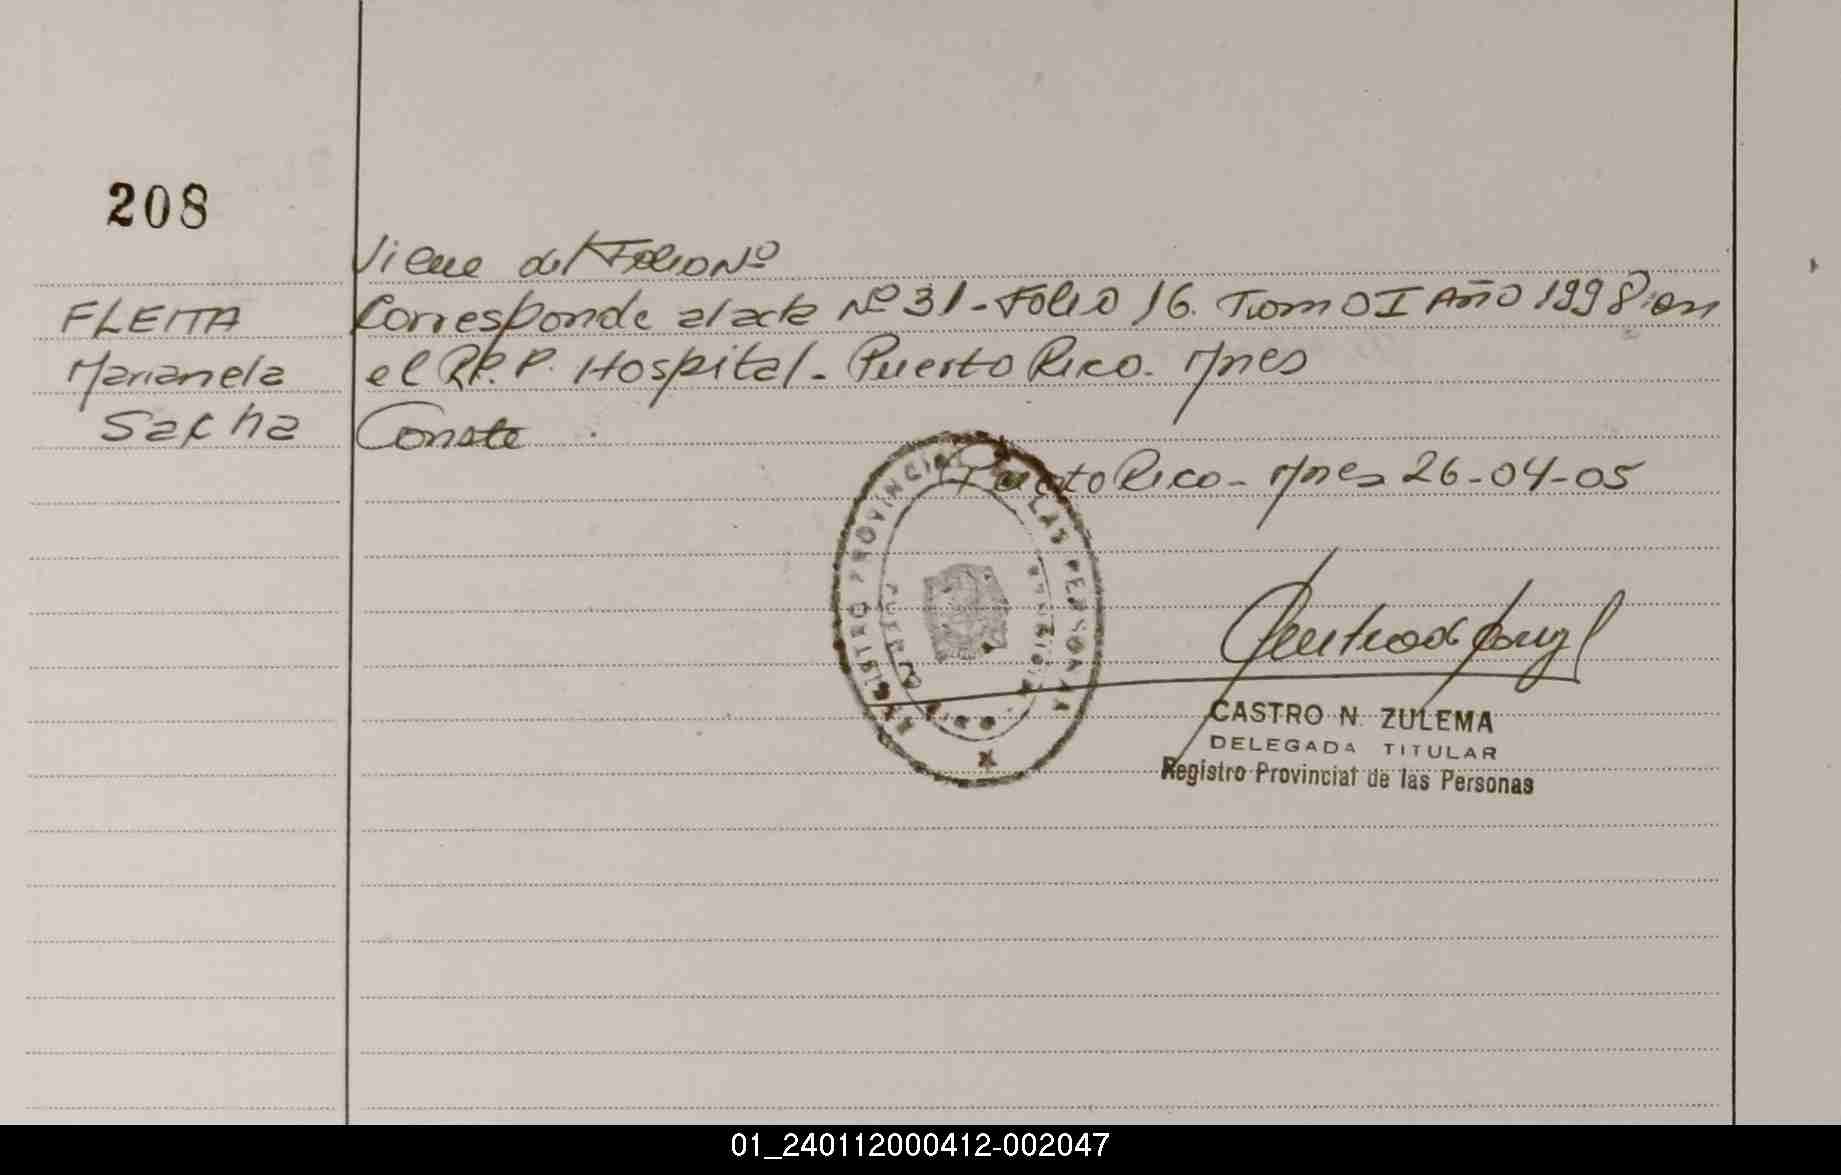 208
Viene del Folio Nº
FLEITA
Marianela
Sacha
Corresponde al acta Nº 31 - Folio 16. Tomo I Año 1998 en
el R.P.P. Hospital - Puerto Rico. Mnes
Conste.
Puerto Rico - Mnes 26-04-05
REGISTRO PROVINCIAL DE LAS PERSONAS
CASTRO N. ZULEMA
DELEGADA TITULAR
Registro Provincial de las Personas
01_240112000412-002047